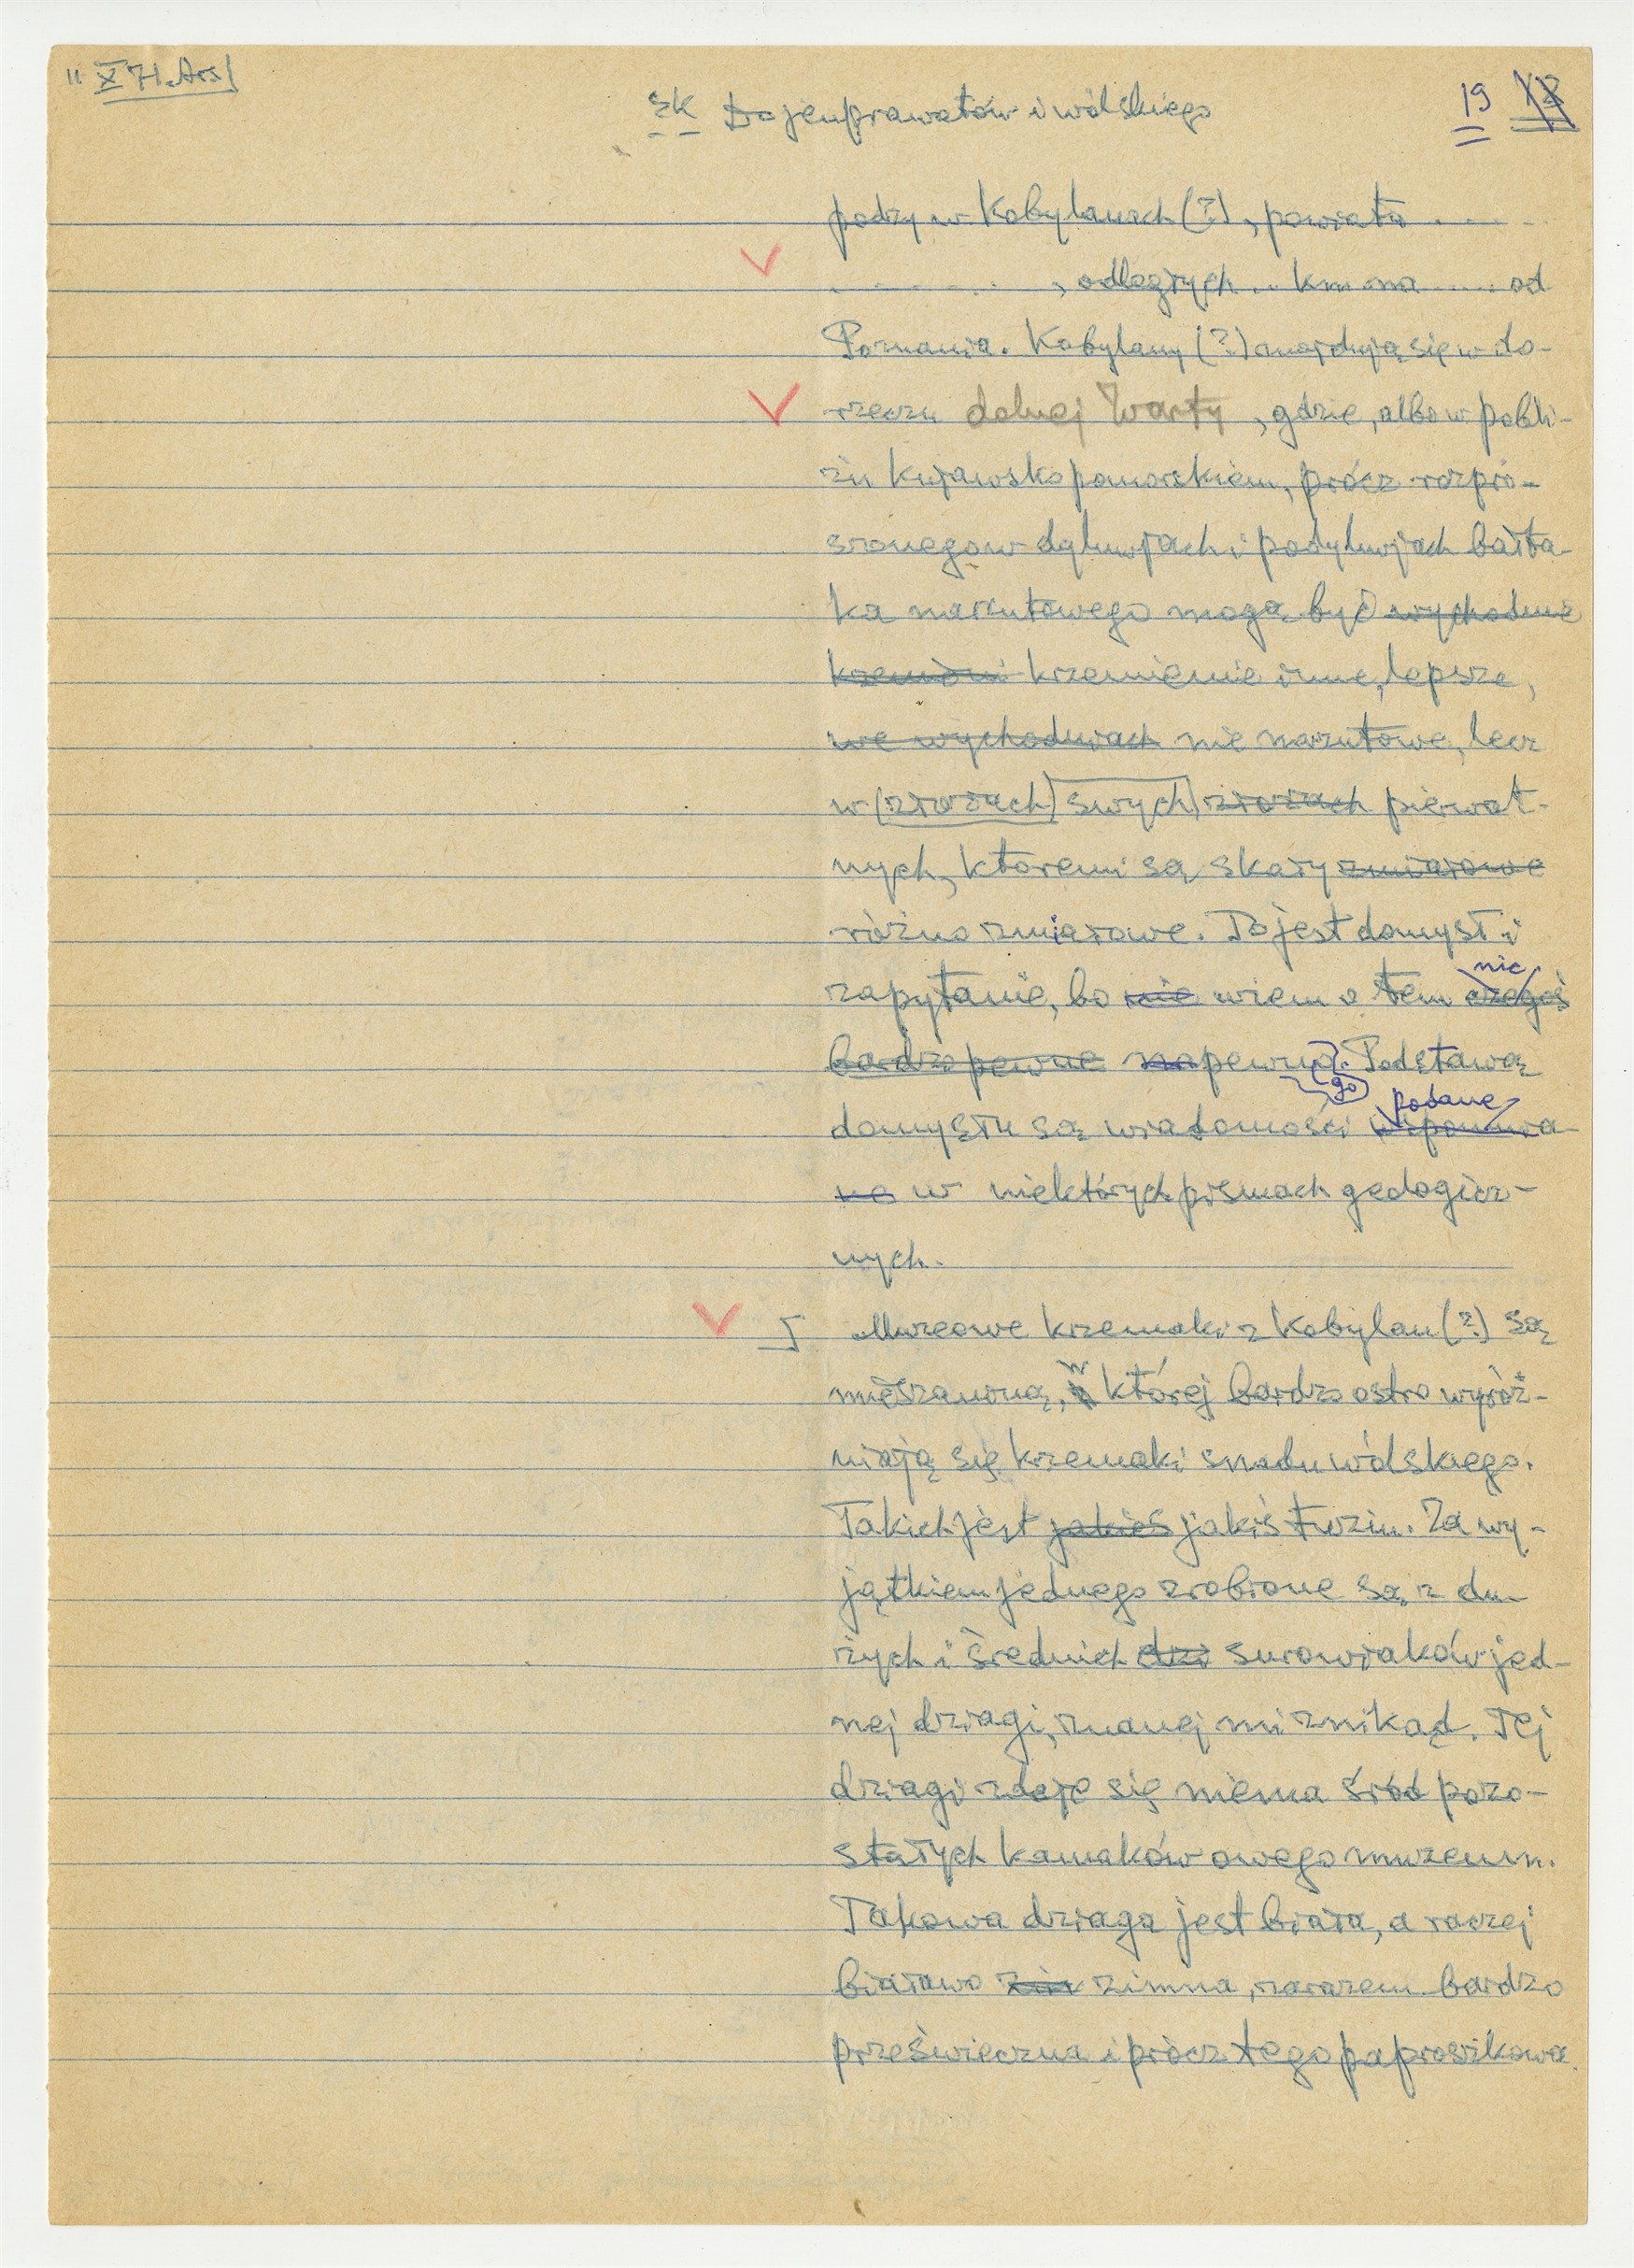 X 71. Ars
sk Dojenprawatów i wólskiego
19
podzy w Kobylanach (?), powiatu . . . .
. . . . . . , odległych .. km na ..... od
Poznania. Kobylany (?) znajdują się w do-
rzeczu dolnej Warty, gdzie, albo w pobli-
żu kujawskopomorskiem, prócz rozpro-
szonego w dyluwjach i podyluwjach bałta-
ka narzutowego mogą być wychodnie
krzemieni krzemienie inne, lepsze,
we wychodniach nie narzutowe, lecz
w (złożach) swych złożach pierwot-
nych, któremi są skały zmiarowe
różno zmiarowe. To jest domysł i
nic
zapytanie, bo nie wiem o tem czegoś
bardzo pewne napewno. Podstawą
go podane
domysłu są wiadomości wspomnia-
ne w niektórych pismach geologicz-
nych.
Muzeowe krzemaki z Kobylan (?) są
mieszanową, w której bardzo ostro wyróż-
niają się krzemaki snadu wólskiego.
Takich jest jakieś jakiś tuzin. Za wy-
jątkiem jednego zrobione są z du-
żych i średnich dzi surowiaków jed-
nej dziagi, znanej mi znikąd. Tej
dziagi zdaje się niema śród pozo-
stałych kamaków owego muzeum.
Takowa dziaga jest biała, a raczej
białawo zim zimna, zarazem bardzo
prześwieczna i prócz tego paproszkowa.